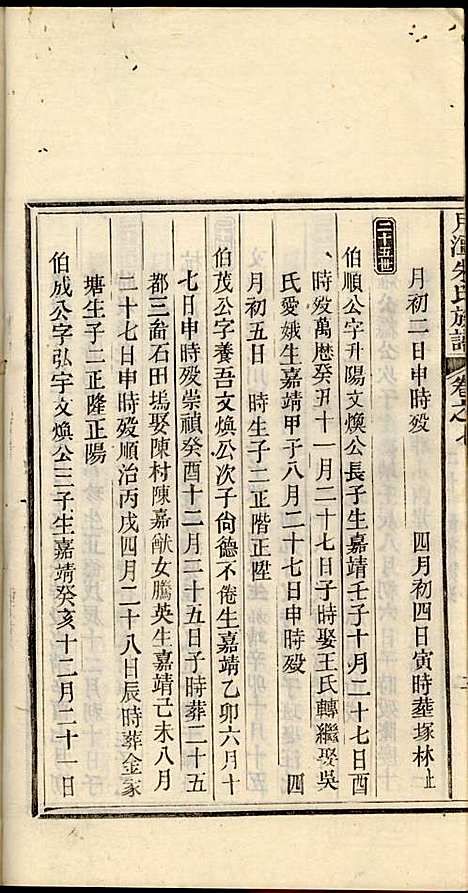 月潭朱氏族譜 卷之七
月初二日申時歿 四月初四日寅時葬塚林止
二十五世
伯順公字升陽文煥公長子生嘉靖壬子十月二十七日酉
時歿萬厯癸丑十一月二十七日子時娶王氏轉繼娶吳
氏愛娥生嘉靖甲子八月二十七日申時歿 四
月初五日 時生子二正階正陞
伯茂公字養吾文煥公次子尚德不倦生嘉靖乙卯六月十
七日申時歿崇禎癸酉十二月二十五日子時葬二十五
都三畝石田塢娶陳村陳嘉猷女騰英生嘉靖己未八月
二十七日申時歿順治丙戌四月二十八日辰時葬金家
塘生子二正隆正陽
伯成公字弘宇文煥公三子生嘉靖癸亥十二月二十一日